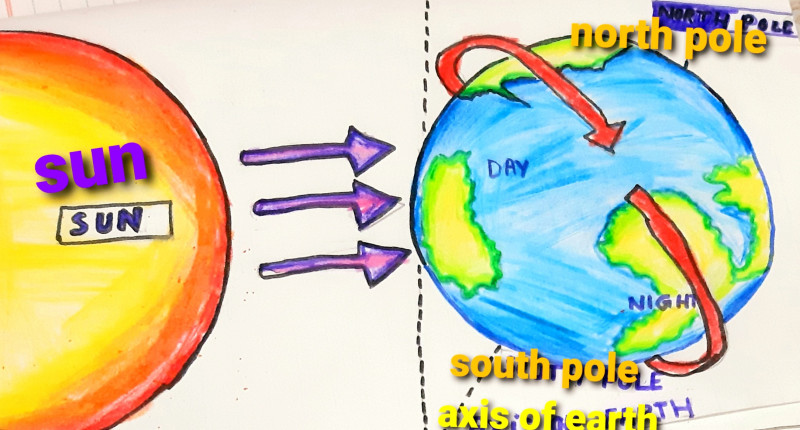 NORTH POLE
north pole
sun
SUN
DAY
NIGHT
south pole
POLE
axis of earth